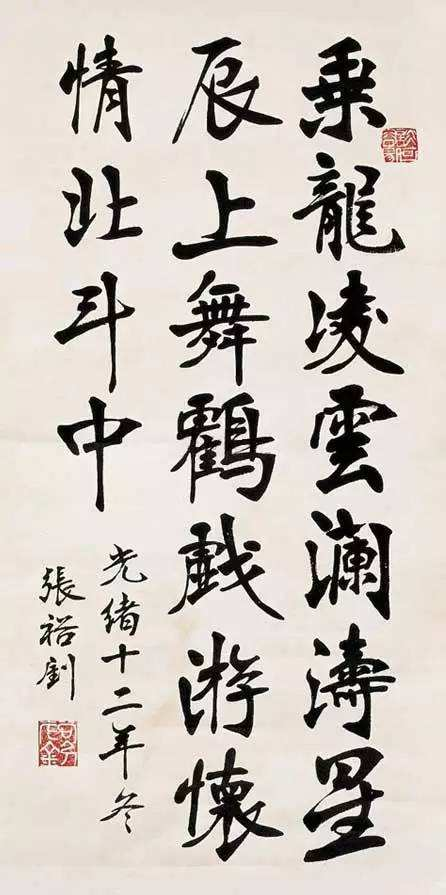 乗龍凌雲瀾濤星
辰上舞鶴戲游懷
情北斗中
光緒十二年冬
張裕釗